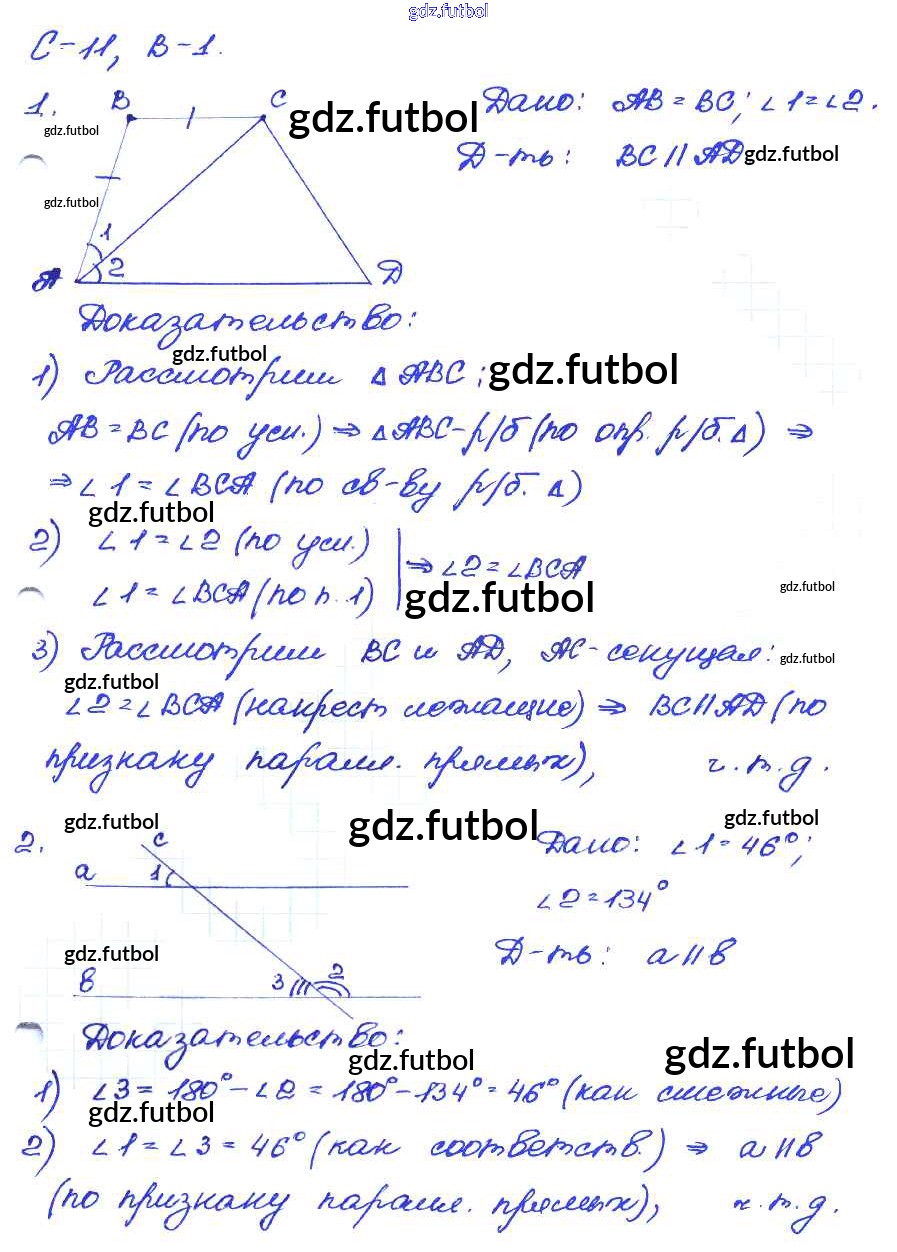 gdz.futbol
С-11, В-1.
1. B C gdz.futbol Дано: AB = BC; ∠1 = ∠2.
gdz.futbol
Д-ть: BC || AD gdz.futbol
gdz.futbol
1
2
A D
Доказательство:
gdz.futbol
1) Рассмотрим △ABC; gdz.futbol
AB = BC (по усл.) ⇒ △ABC - р/б (по опр. р/б. △) ⇒
⇒ ∠1 = ∠BCA (по св-ву р/б. △)
gdz.futbol
2) ∠1 = ∠2 (по усл.)
⇒ ∠2 = ∠BCA
∠1 = ∠BCA (по п. 1)
gdz.futbol
gdz.futbol
3) Рассмотрим BC и AD, AC - секущая:
gdz.futbol
gdz.futbol
∠2 = ∠BCA (накрест лежащие) ⇒ BC || AD (по
признаку паралл. прямых), ч.т.д.
gdz.futbol gdz.futbol gdz.futbol
2. c Дано: ∠1 = 46°;
a 1
∠2 = 134°
gdz.futbol
Д-ть: a || в
в 3 2
Доказательство:
gdz.futbol gdz.futbol
1) ∠3 = 180° - ∠2 = 180° - 134° = 46° (как смежные)
gdz.futbol
2) ∠1 = ∠3 = 46° (как соответств.) ⇒ a || в
(по признаку паралл. прямых), ч.т.д.